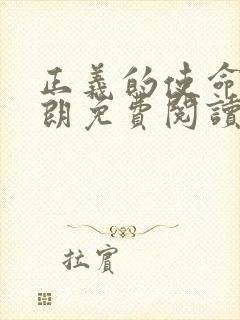 正義的使命
朗免費閱讀
拉賓